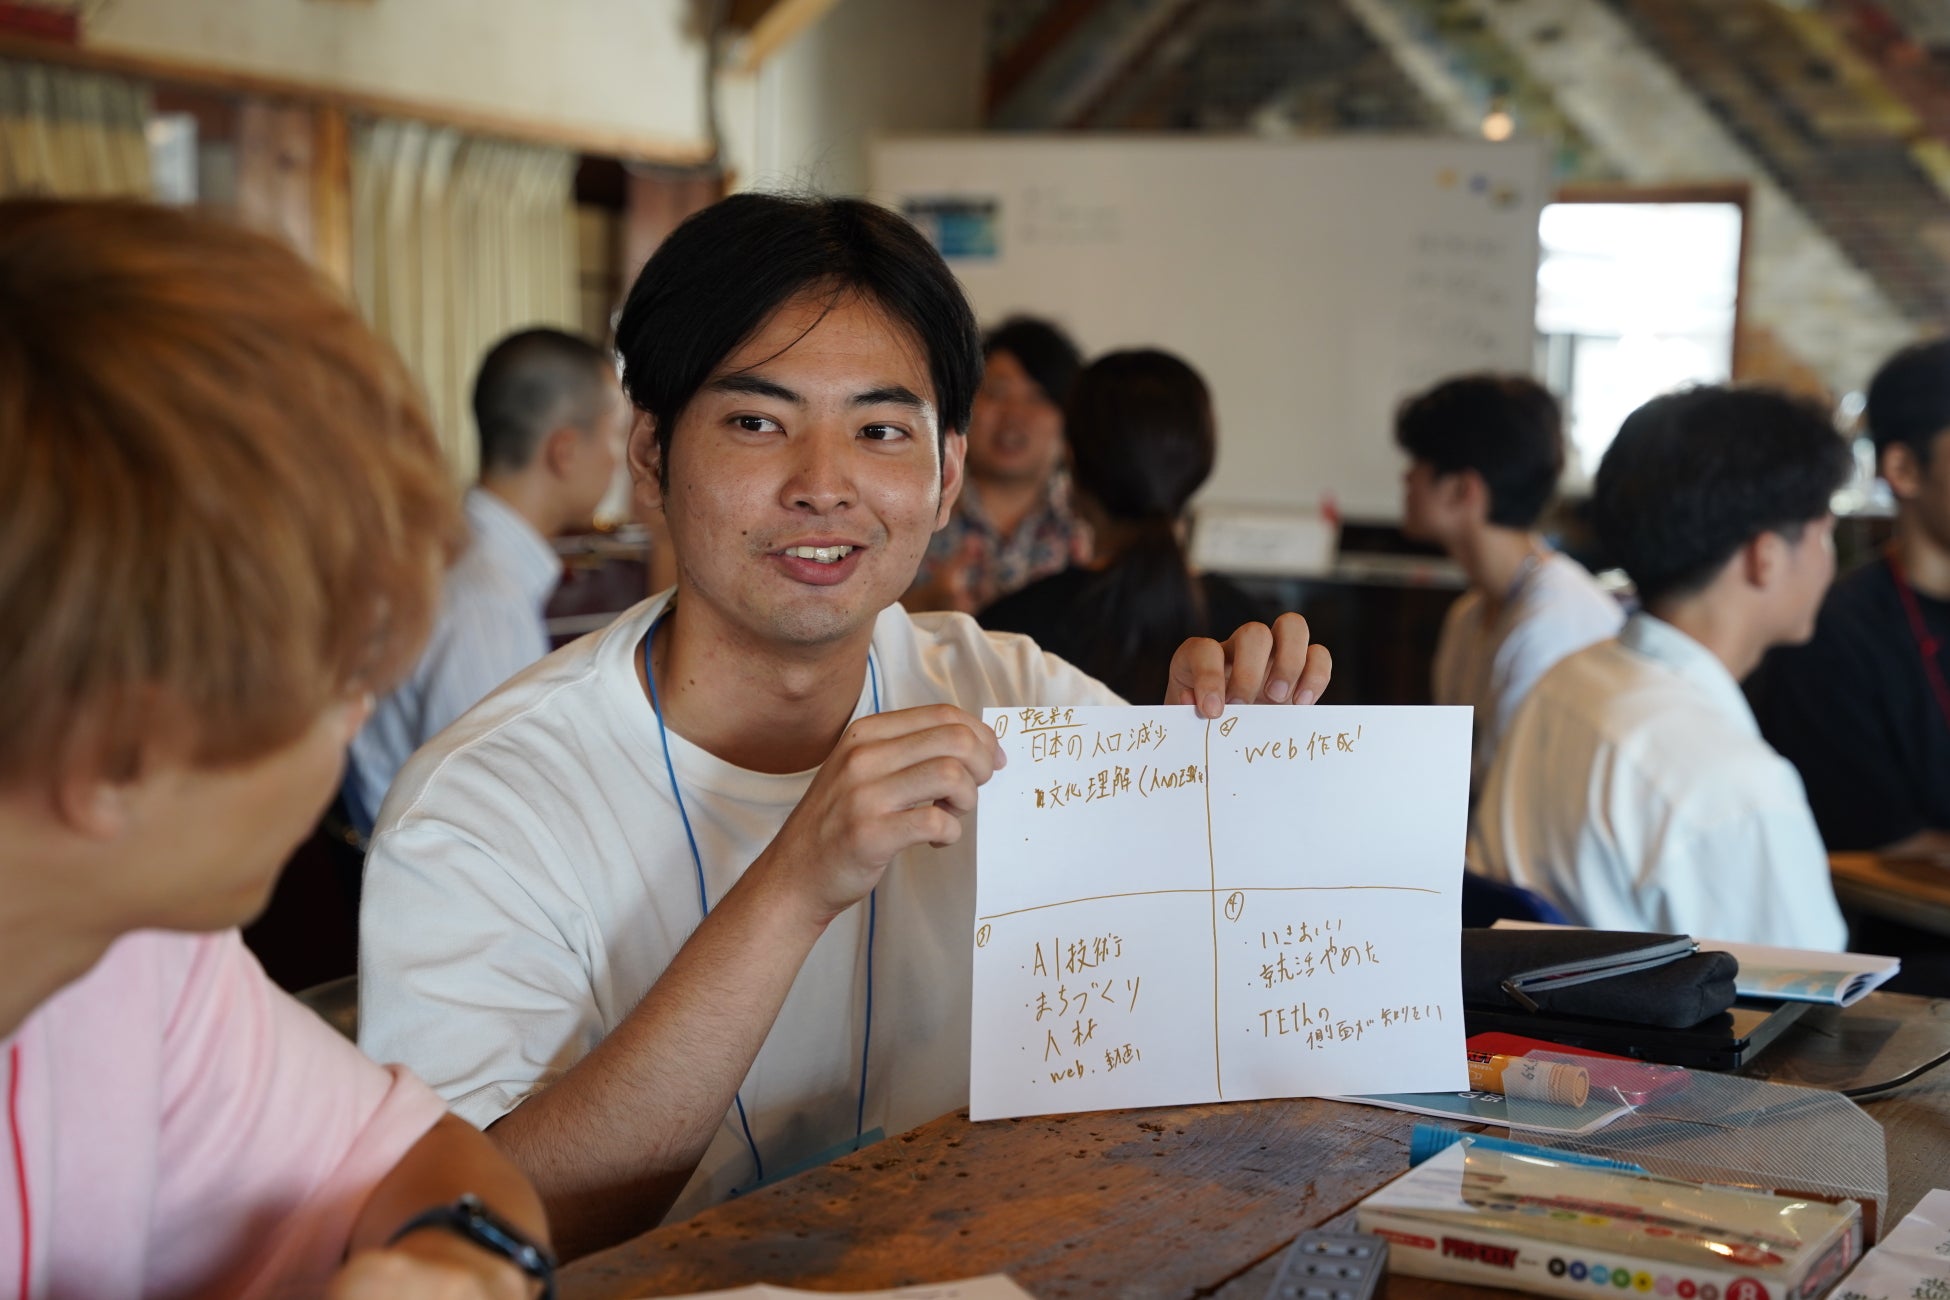 ①
・日本の人口減少
・文化理解(人の理解
②
・Web作成
③
・AI技術
・まちづくり
・人材
・web. 動画
④
・いきおい
・就活やめた
・TEthの
側面が知りたい
PROCKEY
8